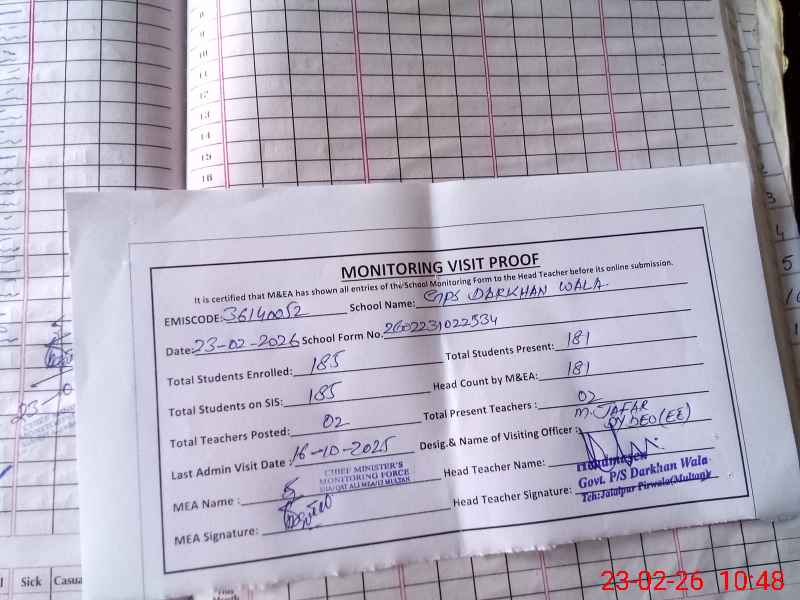 9
10
11
12
13
14
15
16
MONITORING VISIT PROOF
It is certified that M&EA has shown all entries of the School Monitoring Form to the Head Teacher before its online submission.
EMISCODE: 36140052 School Name: GMPS DARKHAN WALA
Date: 23-02-2026 School Form No. 2602231022534
Total Students Enrolled: 185 Total Students Present: 181
Total Students on SIS: 185 Head Count by M&EA: 181
Total Teachers Posted: 02 Total Present Teachers : 02
Last Admin Visit Date : 16-10-2025 Desig.& Name of Visiting Officer : M. JAFAR DY DEO (EE)
MEA Name : CHIEF MINISTER'S MONITORING FORCE Head Teacher Name:
MEA Signature: Head Teacher Signature: Govt. P/S Darkhan Wala
Teh: Jalalpur Pirwala (Multan)
Sick Casua
23-02-26 10:48